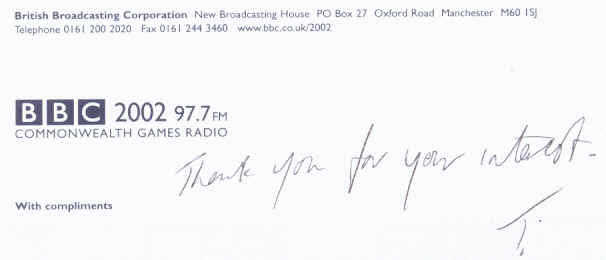 British Broadcasting Corporation New Broadcasting House PO Box 27 Oxford Road Manchester M60 1SJ
Telephone 0161 200 2020 Fax 0161 244 3460 www.bbc.co.uk/2002
BBC 2002 97.7 FM
COMMONWEALTH GAMES RADIO
Thank you for your interest.
With compliments
T.